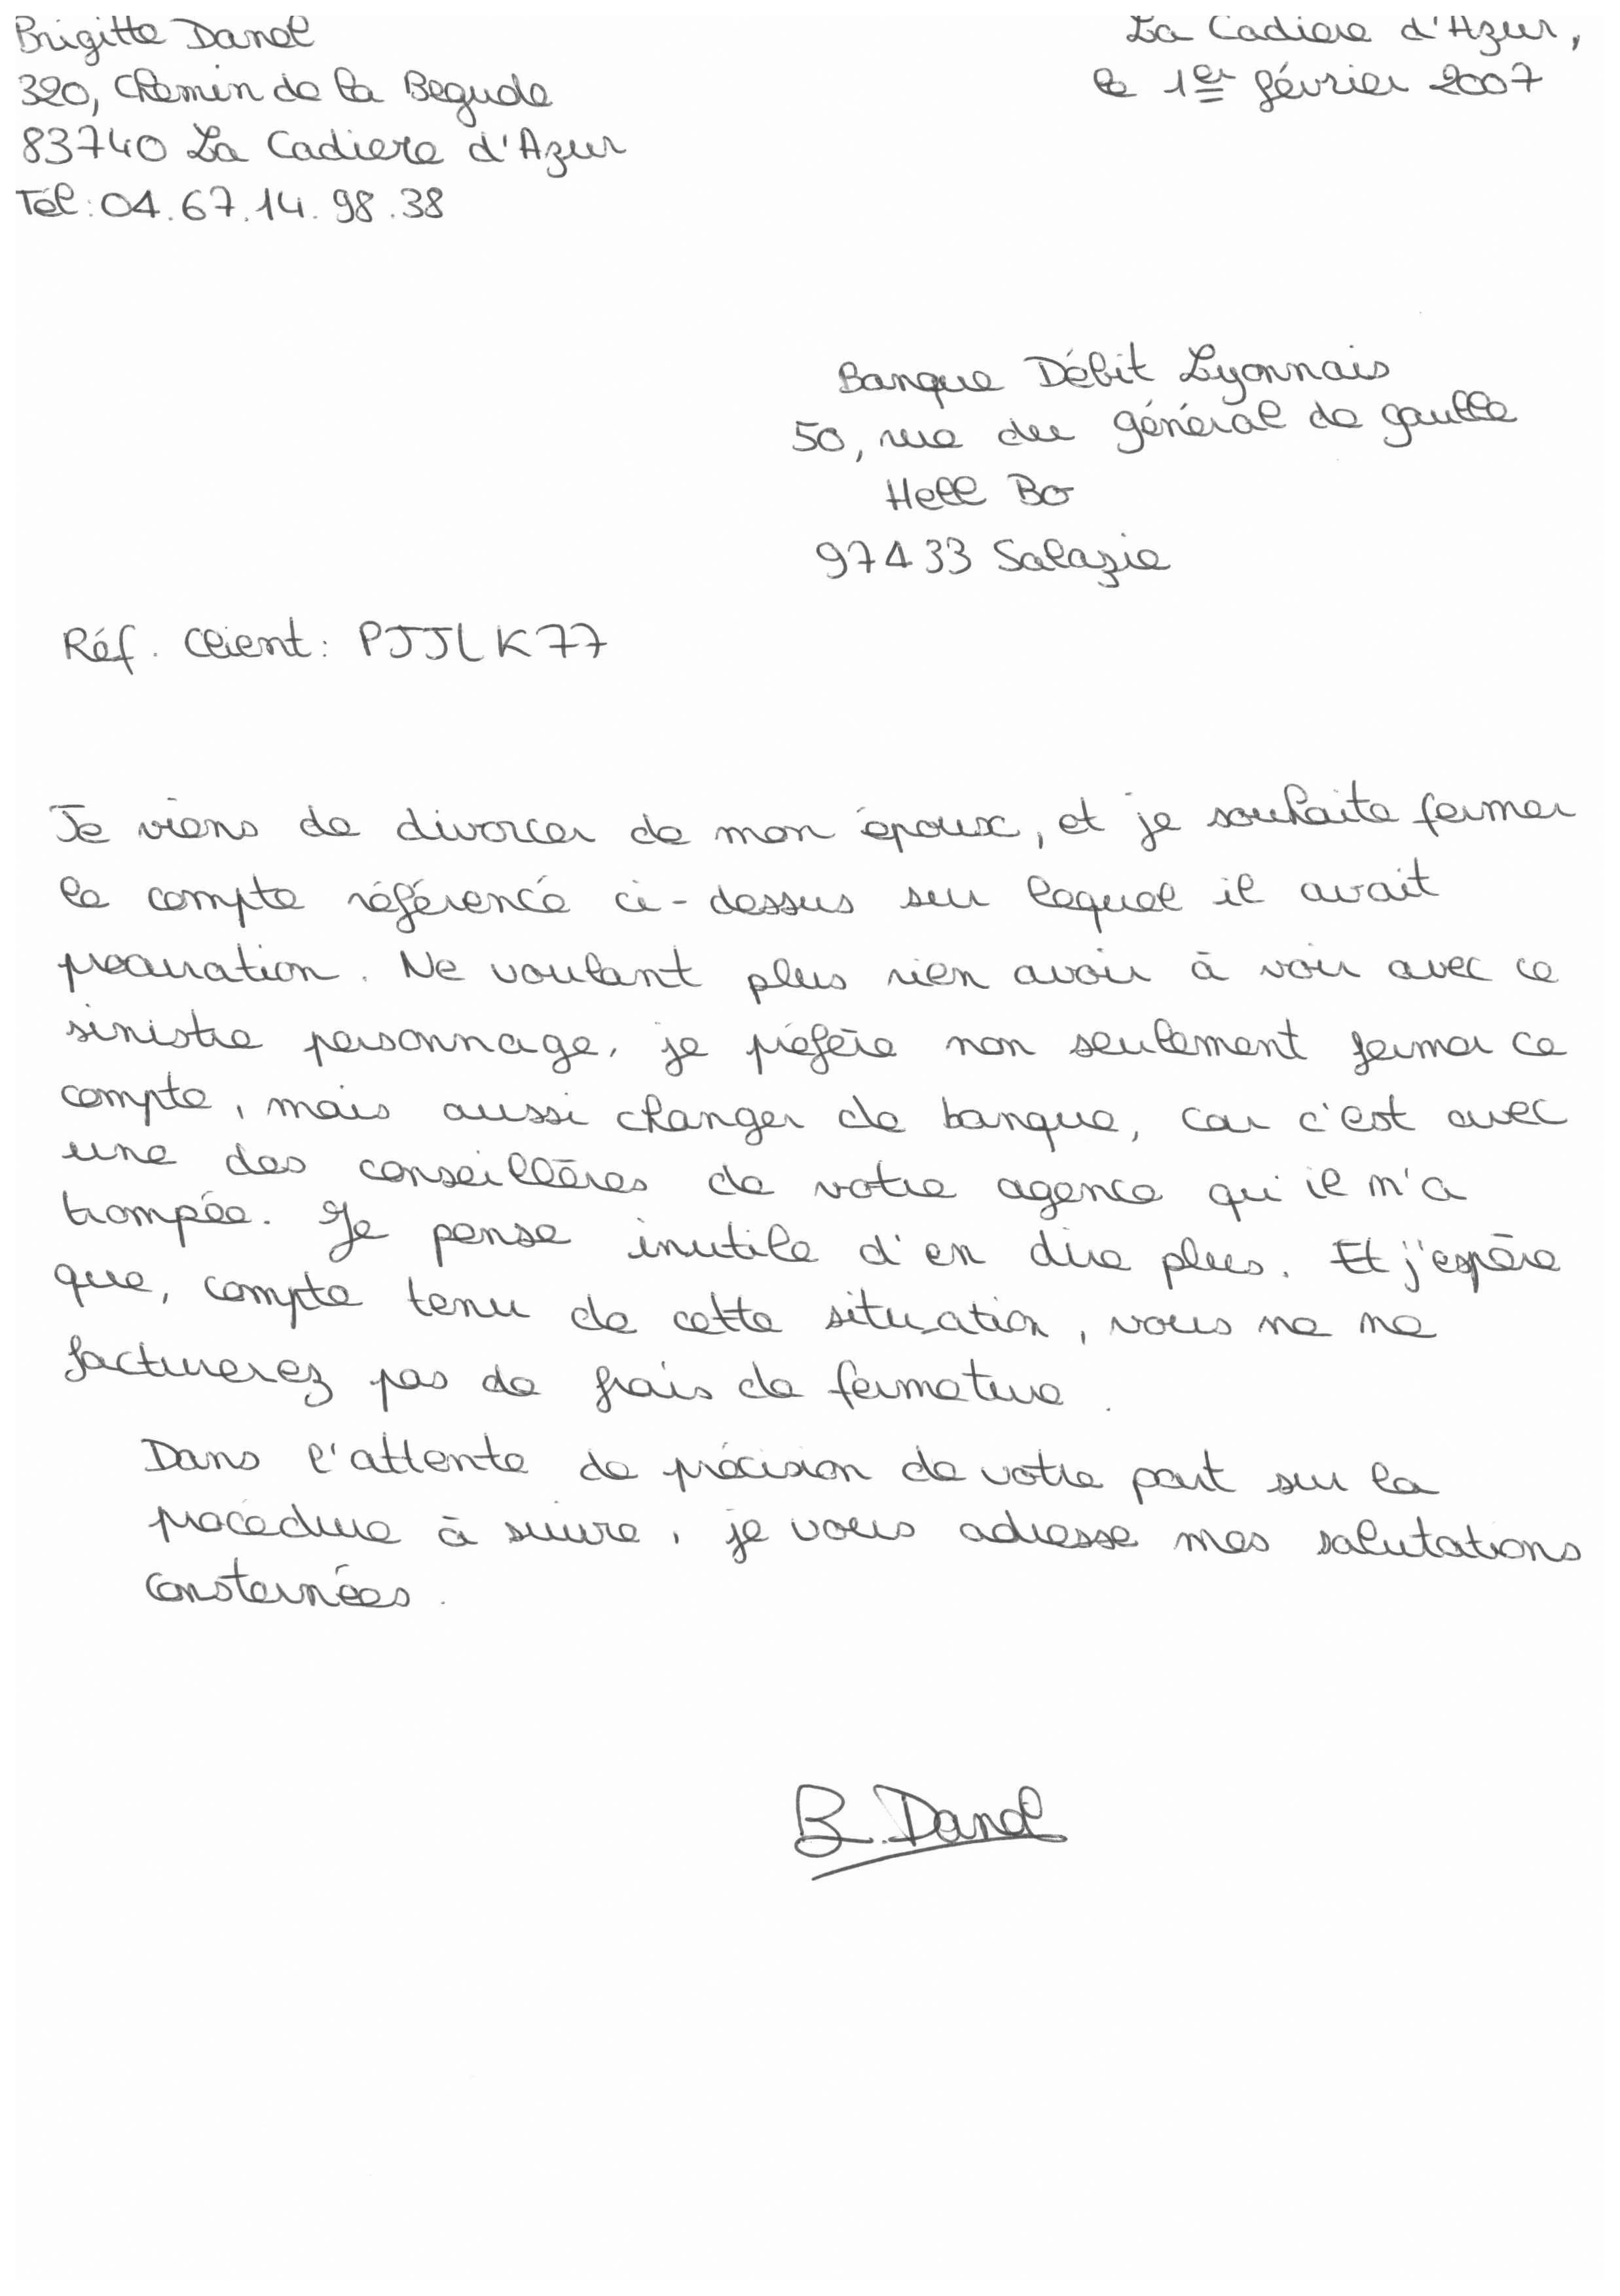 Brigitte Danel
320, Chemin de la Begude
83740 La Cadiere d'Azur
Tél : 04.67.14.98.38
La Cadiere d'Azur,
le 1er février 2007
Banque Débit Lyonnais
50, rue du général de gaulle
Hell Bo
97433 Salazie
Réf. Client : PJJLK77
Je viens de divorcer de mon époux, et je souhaite fermer
le compte référencé ci-dessus sur lequel il avait
procuration. Ne voulant plus rien avoir à voir avec ce
sinistre personnage, je préfère non seulement fermer ce
compte, mais aussi changer de banque, car c'est avec
une des conseillères de votre agence qui il m'a
trompée. Je pense inutile d'en dire plus. Et j'espère
que, compte tenu de cette situation, vous ne me
facturerez pas de frais de fermeture.
Dans l'attente de précision de votre part sur la
procédure à suivre, je vous adresse mes salutations
consternées.
B. Danel